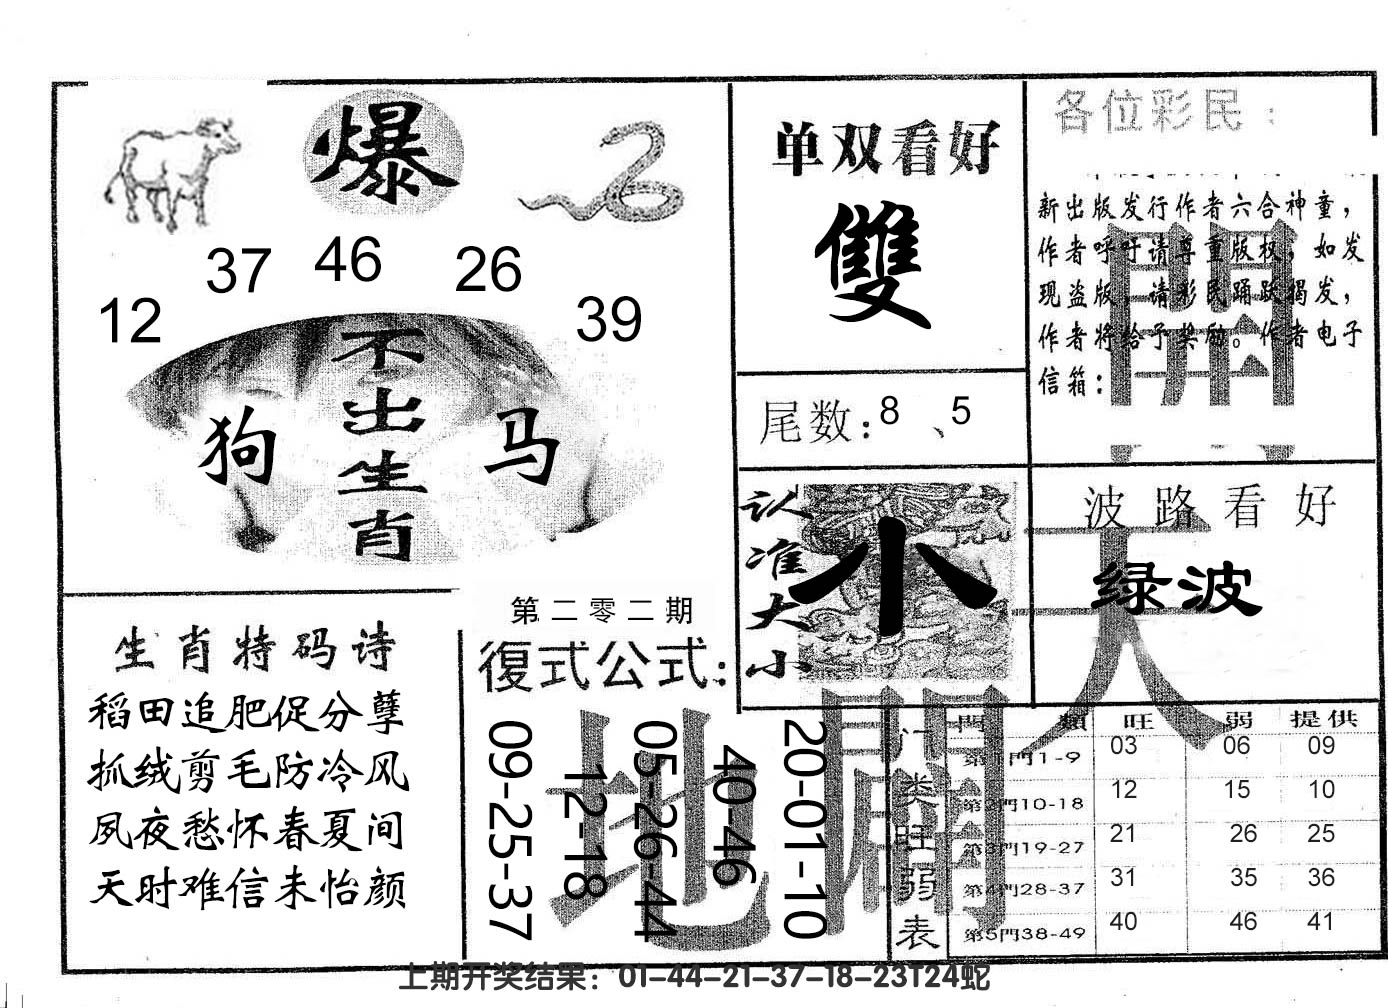 爆
37 46 26
12 39
不出生肖
狗 马
单双看好
雙
尾数:8、5
各位彩民：
新出版发行作者六合神童，
作者呼吁请尊重版权，如发
现盗版，请彩民踊跃揭发，
作者将给予奖励。作者电子
信箱：
開
认准大小
小
波路看好
绿波
天
生肖特码诗
稻田追肥促分孽
抓绒剪毛防冷风
夙夜愁怀春夏间
天时难信未怡颜
第二零二期
復式公式:
09-25-37
12-18
05-26-44
40-46
20-01-10
地
门类旺弱表
門類 旺 弱 提供
第1門1-9 03 06 09
第2門10-18 12 15 10
第3門19-27 21 26 25
第4門28-37 31 35 36
第5門38-49 40 46 41
上期开奖结果：01-44-21-37-18-23T24蛇